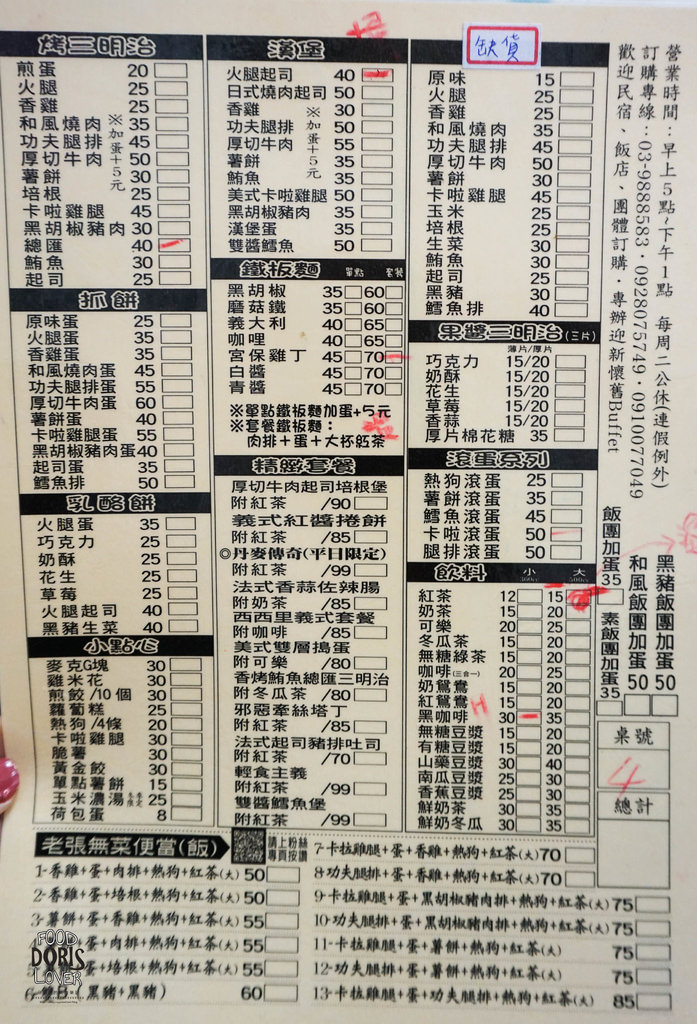 烤三明治
煎蛋 20
火腿 25
香雞 25
和風燒肉 35
功夫腿排 45
厚切牛肉 50
薯餅 30
培根 25
卡啦雞腿 45
黑胡椒豬肉 30
總匯 40
鮪魚 30
起司 25
※加蛋+5元
抓餅
原味蛋 25
火腿蛋 35
香雞蛋 35
和風燒肉蛋 45
功夫腿排蛋 55
厚切牛肉蛋 60
薯餅蛋 40
卡啦雞腿蛋 55
黑胡椒豬肉蛋 40
起司蛋 35
鱈魚排 50
乳酪餅
火腿蛋 35
巧克力 25
奶酥 25
花生 25
草莓 25
火腿起司 40
黑豬生菜 40
小點心
麥克G塊 30
雞米花 30
煎餃/10個 30
蘿蔔糕 25
熱狗/4條 20
卡啦雞腿 30
脆薯 30
黃金餃 30
單點薯餅 15
玉米濃湯 25
荷包蛋 8
漢堡
火腿起司 40
日式燒肉起司 50
香雞 30
功夫腿排 50
厚切牛肉 55
薯餅 35
鮪魚 35
美式卡啦雞腿 50
黑胡椒豬肉 35
漢堡蛋 35
雙醬鱈魚 50
※加蛋+5元
鐵板麵 單點 套餐
黑胡椒 35 60
蘑菇鐵 35 60
義大利 40 65
咖哩 40 65
宮保雞丁 45 70
白醬 45 70
青醬 45 70
※單點鐵板麵加蛋+5元
※套餐鐵板麵：
肉排+蛋+大杯紅茶
精緻套餐
厚切牛肉起司培根堡
附紅茶 /90
義式紅醬捲餅
附紅茶 /85
◎丹麥傳奇(平日限定)
附紅茶 /99
法式香蒜佐辣腸
附奶茶 /85
西西里義式套餐
附咖啡 /85
美式雙層搗蛋
附可樂 /80
香烤鮪魚總匯三明治
附冬瓜茶 /80
邪惡牽絲塔丁
附紅茶 /85
法式起司豬排吐司
附紅茶 /70
輕食主義
附紅茶 /99
雙醬鱈魚堡
附紅茶 /99
缺貨
原味 15
火腿 25
香雞 25
和風燒肉 35
功夫腿排 45
厚切牛肉 50
薯餅 30
卡啦雞腿 45
玉米 25
培根 25
生菜 30
鮪魚 30
起司 25
黑豬 30
鱈魚排 40
果醬三明治(三片)
薄片/厚片
巧克力 15/20
奶酥 15/20
花生 15/20
草莓 15/20
香蒜 15/20
厚片棉花糖 35
滾蛋系列
熱狗滾蛋 25
薯餅滾蛋 35
鱈魚滾蛋 45
卡啦滾蛋 50
腿排滾蛋 50
飲料 小 大
紅茶 12 15
奶茶 15 20
可樂 20 25
冬瓜茶 15 20
無糖綠茶 15 20
咖啡(三合一) 15 20
奶鴛鴦 15 20
紅鴛鴦 15 20
黑咖啡 30 35
無糖豆漿 15 20
有糖豆漿 15 20
山藥豆漿 30 40
南瓜豆漿 25 30
香蕉豆漿 25 30
鮮奶茶 30 35
鮮奶冬瓜 30 35
H
營業時間：早上5點~下午1點 每周二公休(連假例外)
訂購專線：03-9888583·0928075749·0910077049
歡迎民宿、飯店、團體訂購·專辦迎新懷舊Buffet
黑豬飯團加蛋 50
和風飯團加蛋 50
飯團加蛋 35
素飯團加蛋 35
桌號
4
總計
老張無菜便當(飯)
請上粉絲
專頁按讚
1-香雞+蛋+肉排+熱狗+紅茶(大) 50
2-香雞+蛋+培根+熱狗+紅茶(大) 50
3-薯餅+蛋+香雞+熱狗+紅茶(大) 55
蛋+肉排+熱狗+紅茶(大) 55
蛋+培根+熱狗+紅茶(大) 55
(黑豬+黑豬) 60
7-卡拉雞腿+蛋+香雞+熱狗+紅茶(大) 70
8-功夫腿排+蛋+香雞+熱狗+紅茶(大) 70
9-卡拉雞腿+蛋+黑胡椒豬肉排+熱狗+紅茶(大) 75
10-功夫腿排+蛋+黑胡椒豬肉排+熱狗+紅茶(大) 75
11-卡拉雞腿+蛋+薯餅+熱狗+紅茶(大) 75
12-功夫腿排+蛋+薯餅+熱狗+紅茶(大) 75
13-卡拉雞腿+蛋+功夫腿排+熱狗+紅茶(大) 85
FOOD
DORIS
LOVER